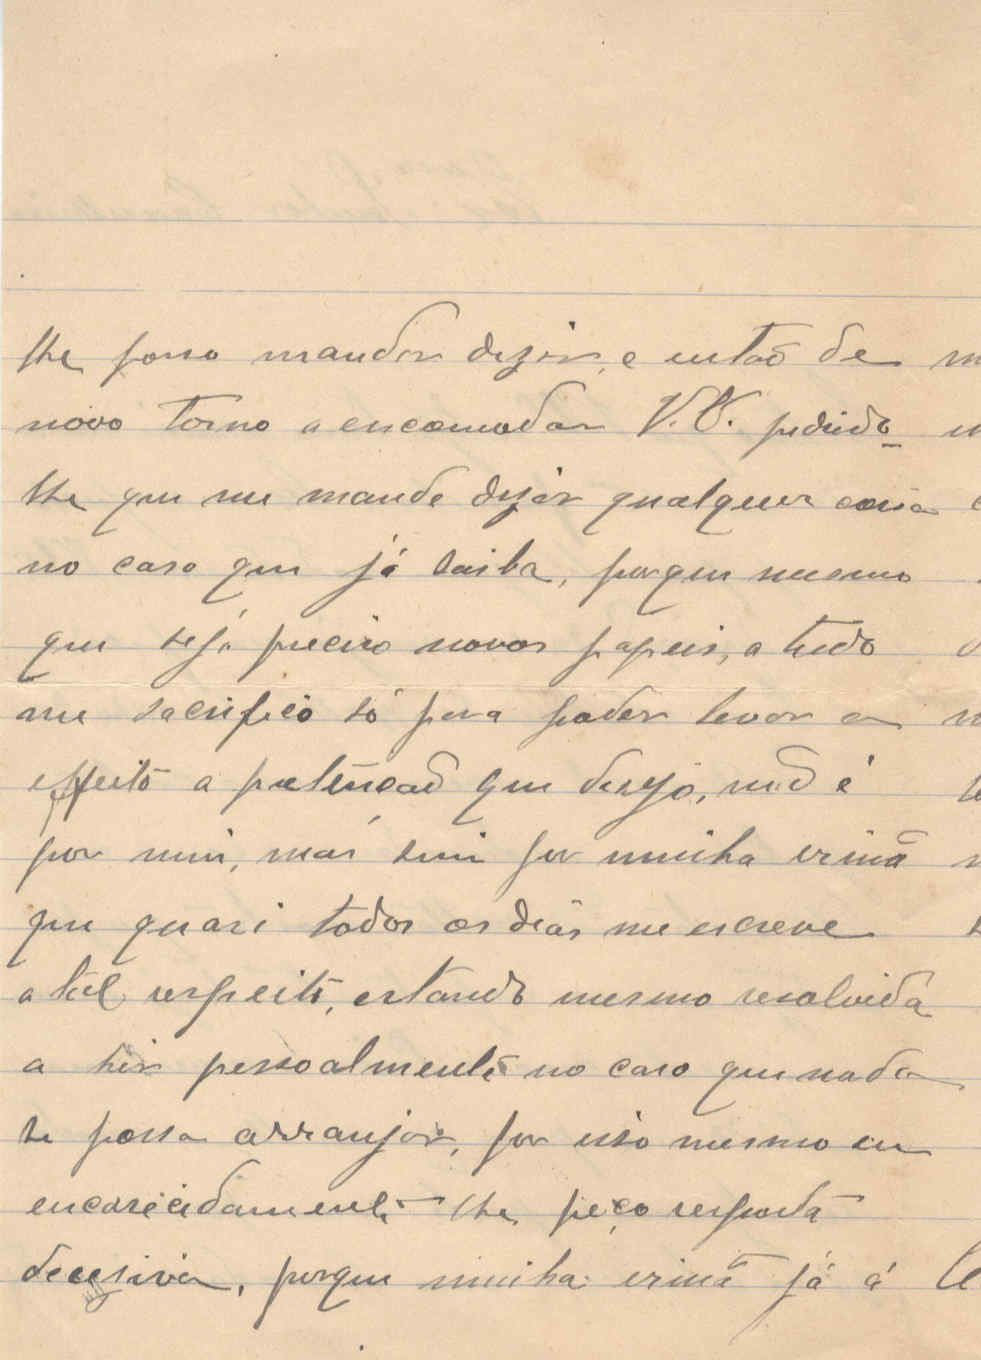 lhe posso mandar dizer, e então de
novo torno a encomodar V. E. pedindo-
lhe que me mande dizer qualquer coisa
no caso que já saiba, porque mesmo
que sejá preciso novos papeis, a tudo
me sacrifico só para poder levar a
effeito a pretenção que desejo, não é
por mim, mas sim por minha irmã
que quasi todos os dias me escreve
a tal respeito, estando mesmo resolvida
a hir pessoalmente no caso que nada
se possa arranjar, por isso mesmo eu
encarecidamente lhe peço resposta
decesiva, porque minha irmã já á